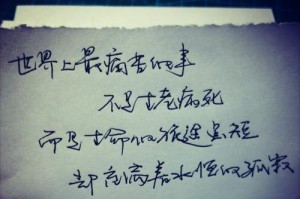 世界上最痛苦的事
不是生老病死
而是生命的虽短
却充满着永恒的孤寂